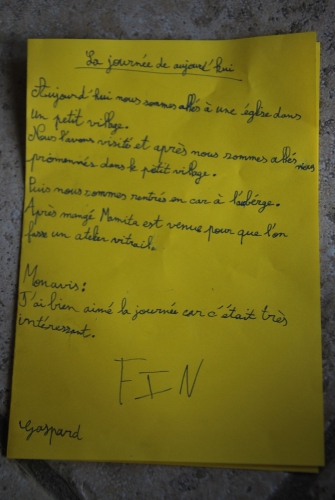 La journée de aujourd'hui
Aujourd'hui nous sommes allés à une église dans
un petit village.
Nous l'avons visité et après nous sommes allés nous
promennés dans le petit village.
Puis nous sommes rentrés en car à l'aubérge.
Après mangé Mamita est venue pour que l'on
fasse un atelier vitrail.
Mon avis:
J'ai bien aimé la journée car c'était très
intéressant.
FIN
Gaspard